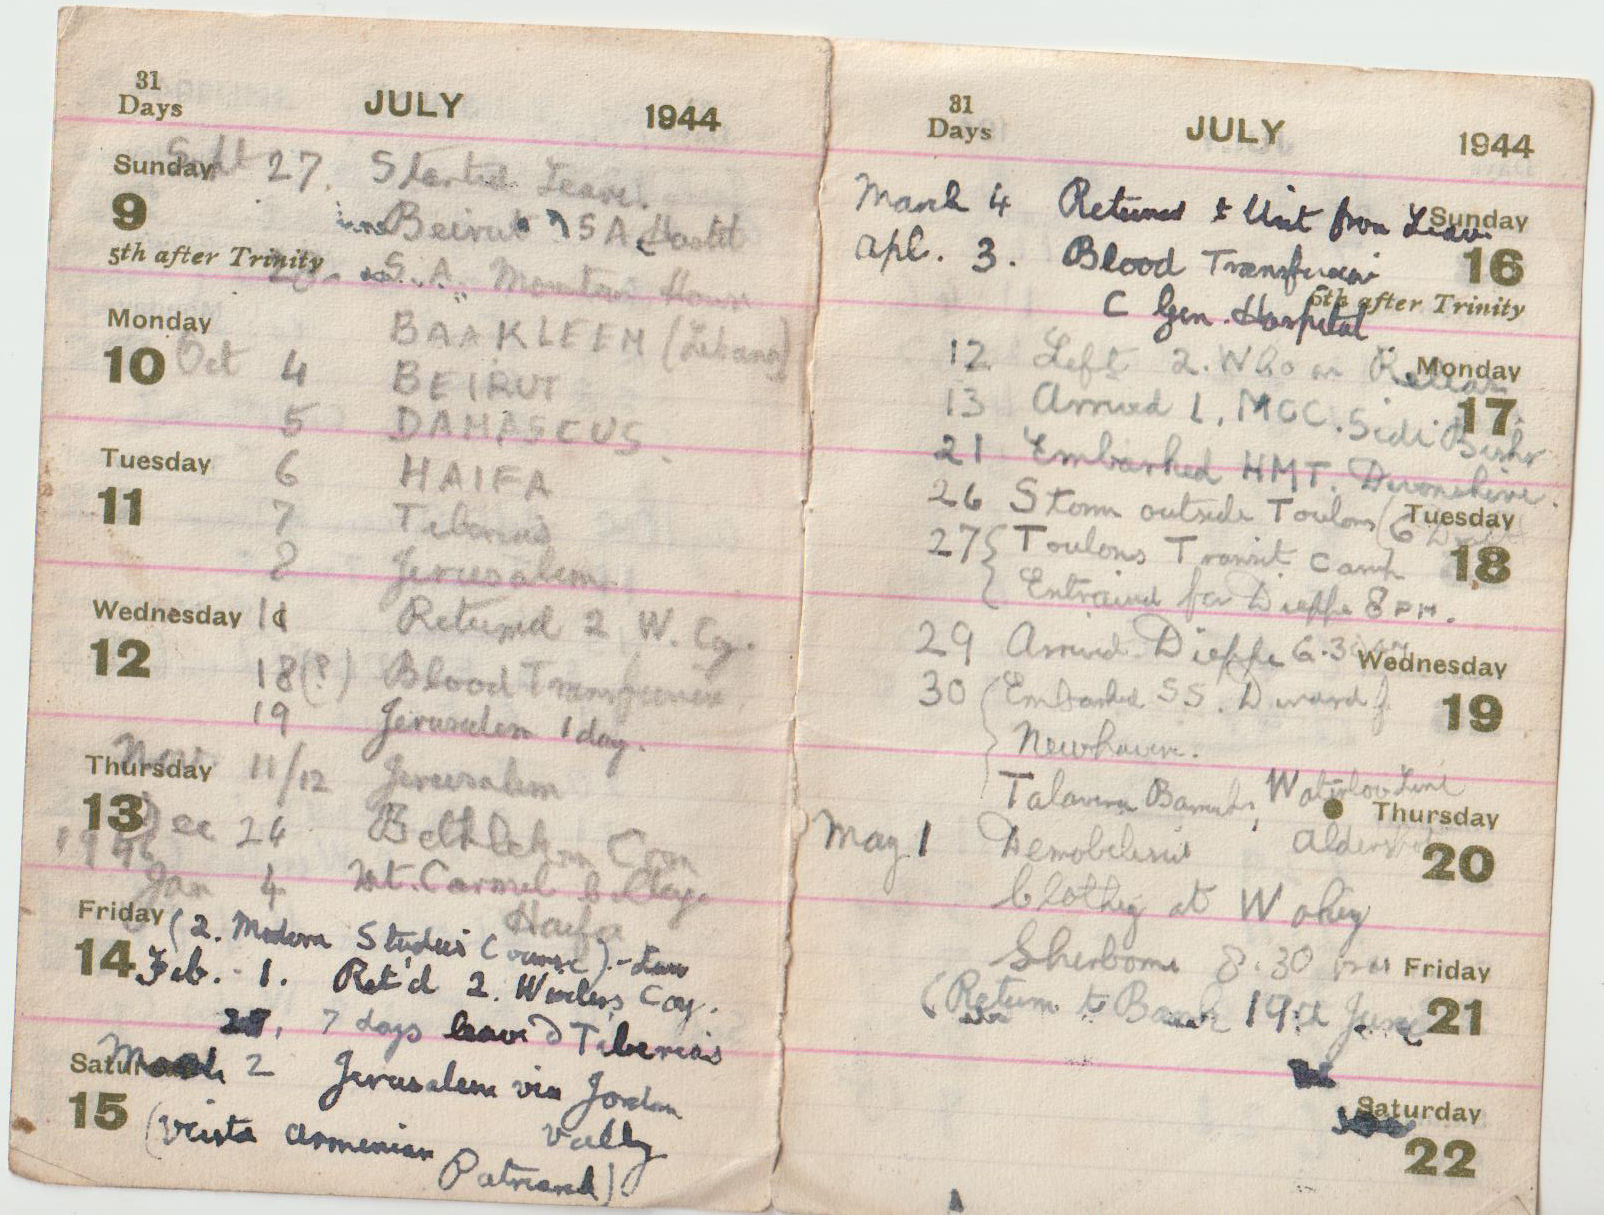 31
Days JULY 1944
Sunday Sept 27. Started Leave.
9 Beirut SA Hostel
5th after Trinity 28 S.A. Mountain House
Monday BAAKLEEN (Lebanon)
10 Oct 4 BEIRUT
5 DAMASCUS
Tuesday 6 HAIFA
11 7 Tiberias
8 Jerusalem
Wednesday 11 Returned 2 W. Coy.
12 18(?) Blood Transfusion
19 Jerusalem 1 day.
Thursday Nov 11/12 Jerusalem
13 Dec 24 Bethlehem
1946
Jan 4 Mt. Carmel College
Haifa
Friday (2. Modern Studies Course) - Law
14 Feb. - 1. Ret'd 2. Wireless Coy.
7 days leave Tiberias
Saturday March 2 Jerusalem via Jordan
15 Valley
(visit Armenian
Patriarch)
31
Days JULY 1944
March 4 Returned to Unit from Leave Sunday
Apl. 3. Blood Transfusion 16
6th after Trinity
Gen. Hospital
12 Left 2. on Release Monday
13 Arrived 1. MCC. Sidi Bishr 17
21 Embarked HMT. Devonshire.
26 Storm outside Toulons Tuesday
27 Toulons Transit Camp 18
Entrained for Dieppe 8 PM.
29 Arrived Dieppe 6.30 Wednesday
30 Embarked SS. 19
Newhaven.
Talavera Barracks, Waterloo Lines Thursday
May 1 Demobilised Aldershot 20
Clothing at Woking
Sherborne 8.30 Friday
(Return to Bank 19th June 21
Saturday
22